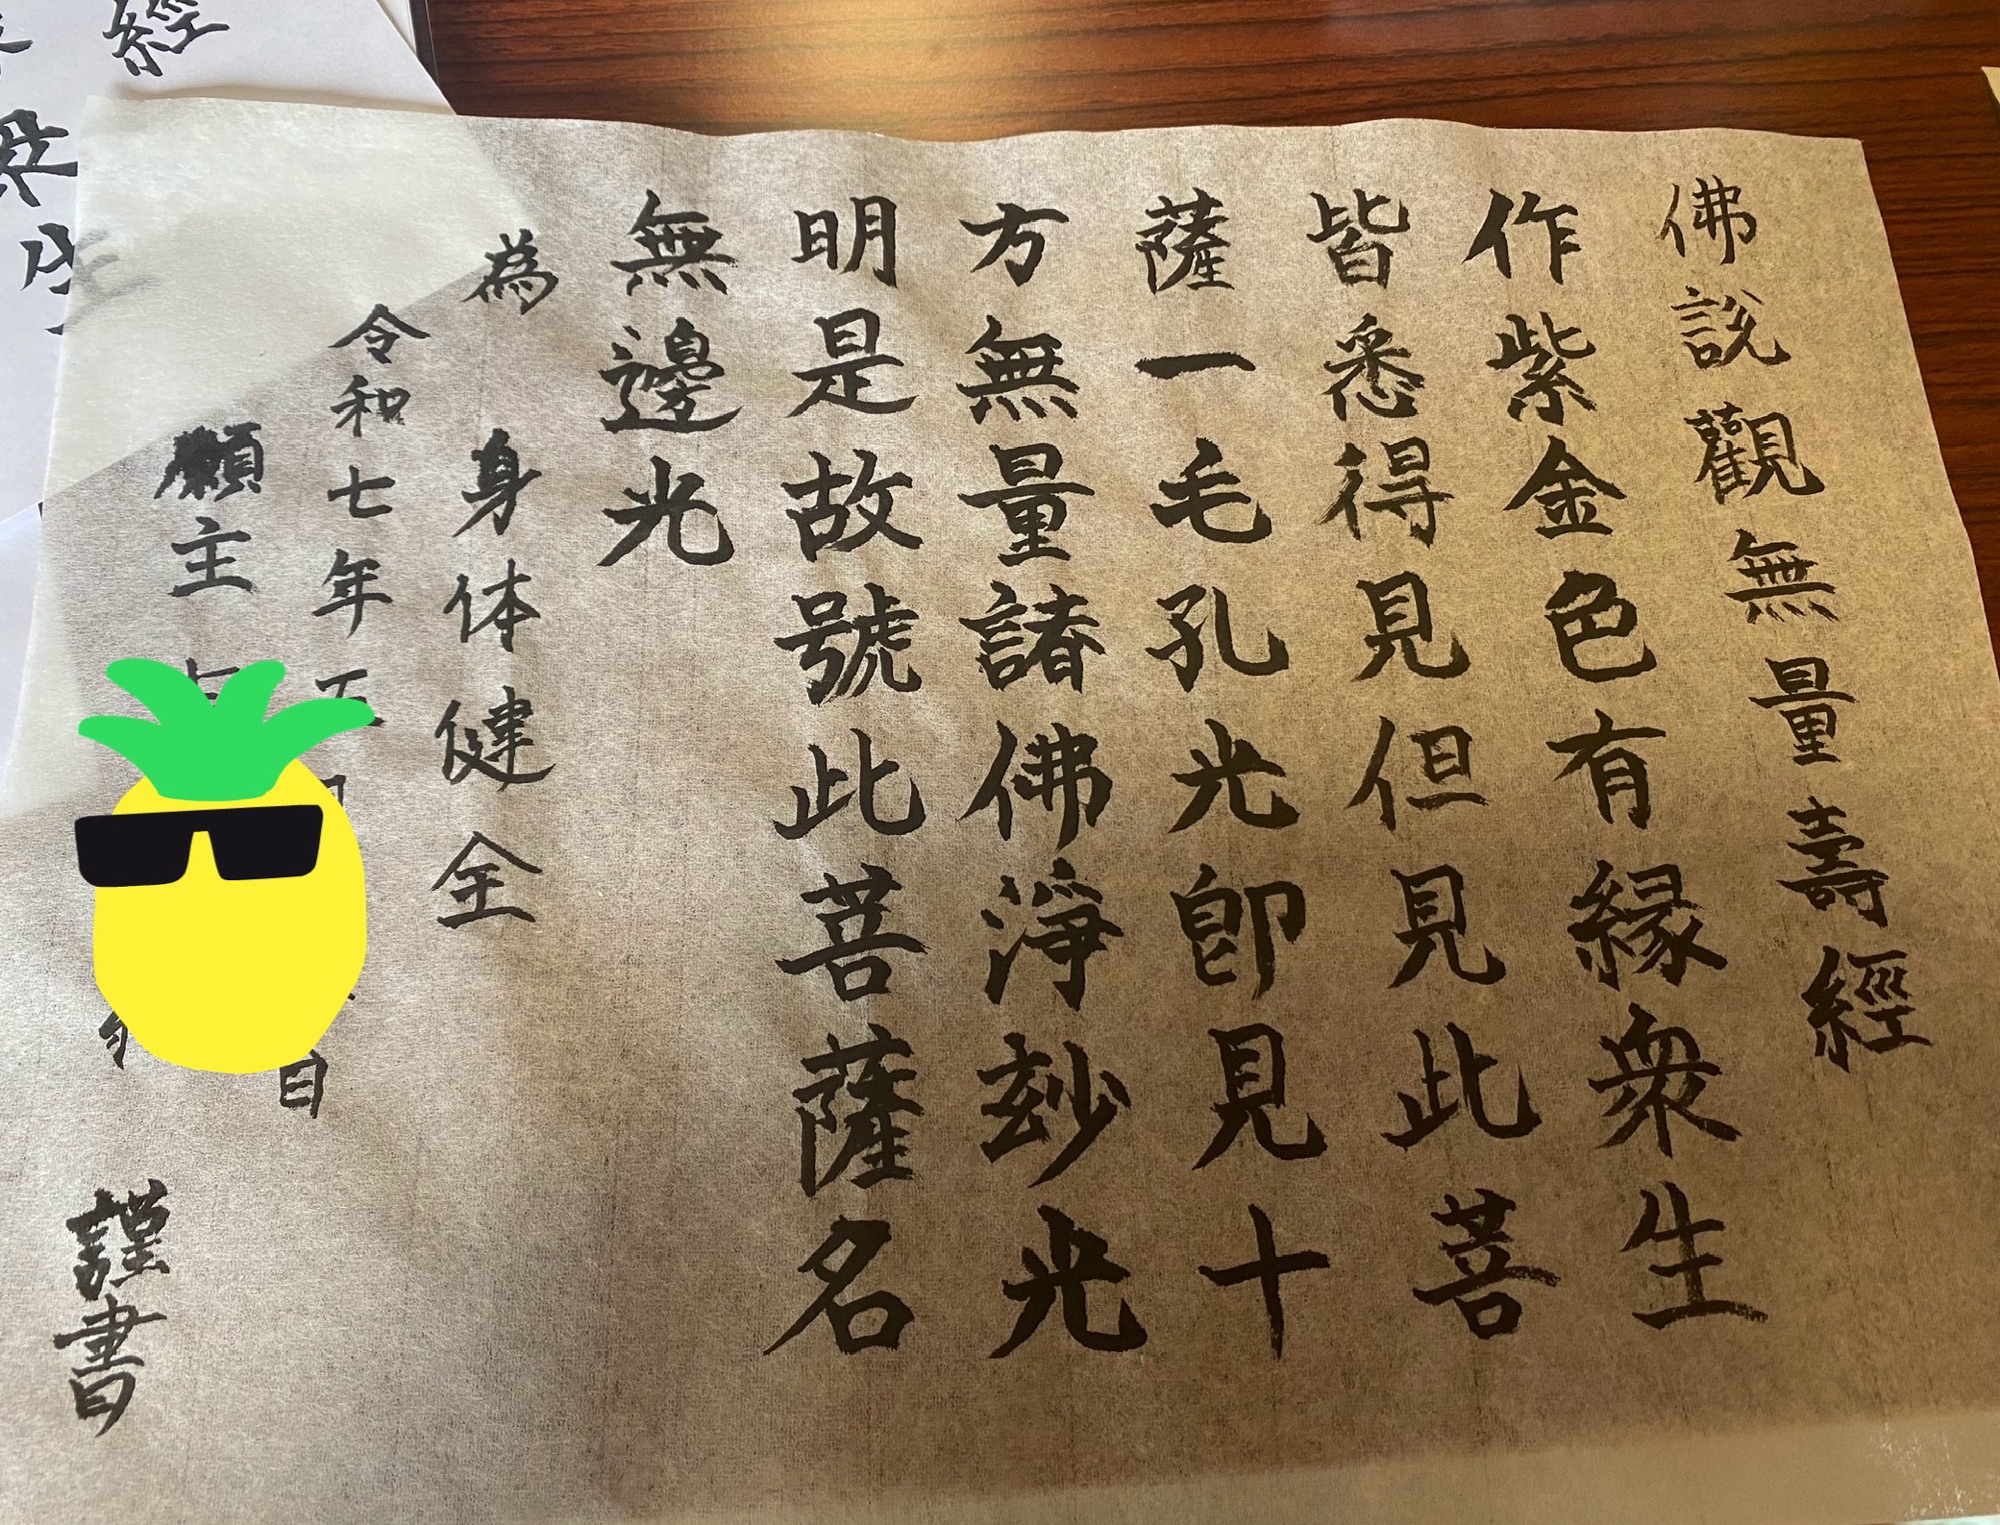 佛說觀無量壽經
作紫金色有縁衆生
皆悉得見但見此菩
薩一毛孔光卽見十
方無量諸佛淨玅光
明是故號此菩薩名
無邊光
為 身体健全
令和七年五月 日
願主 謹書
經